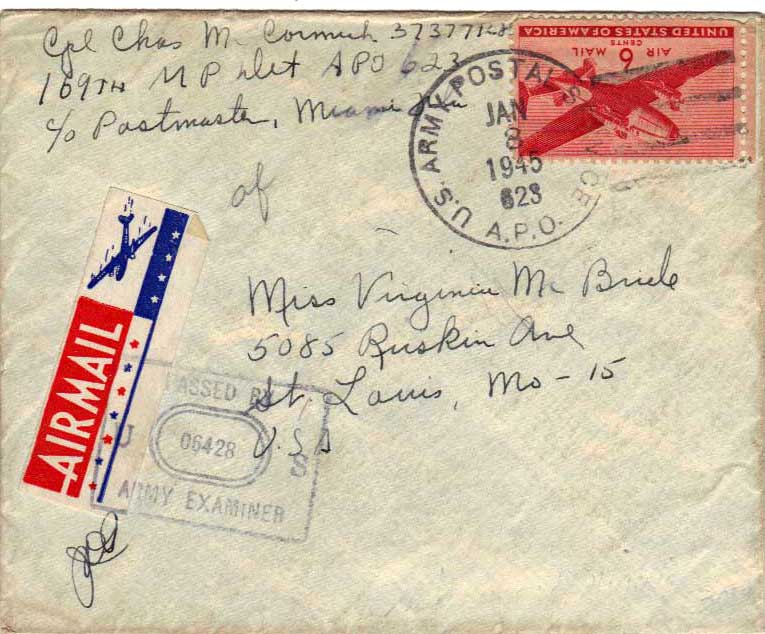 Cpl Chas Mc Cormick 37377128
169TH MP Det APO 623
c/o Postmaster, Miami Fla
UNITED STATES OF AMERICA
AIR MAIL
6 CENTS
U.S. ARMY POSTAL SERVICE
JAN
8
1945
623
A.P.O.
of
Miss Virginia Mc Bride
5085 Ruskin Ave
St. Louis, Mo - 15
U.S.A
AIRMAIL
PASSED BY
U 06428 S
ARMY EXAMINER